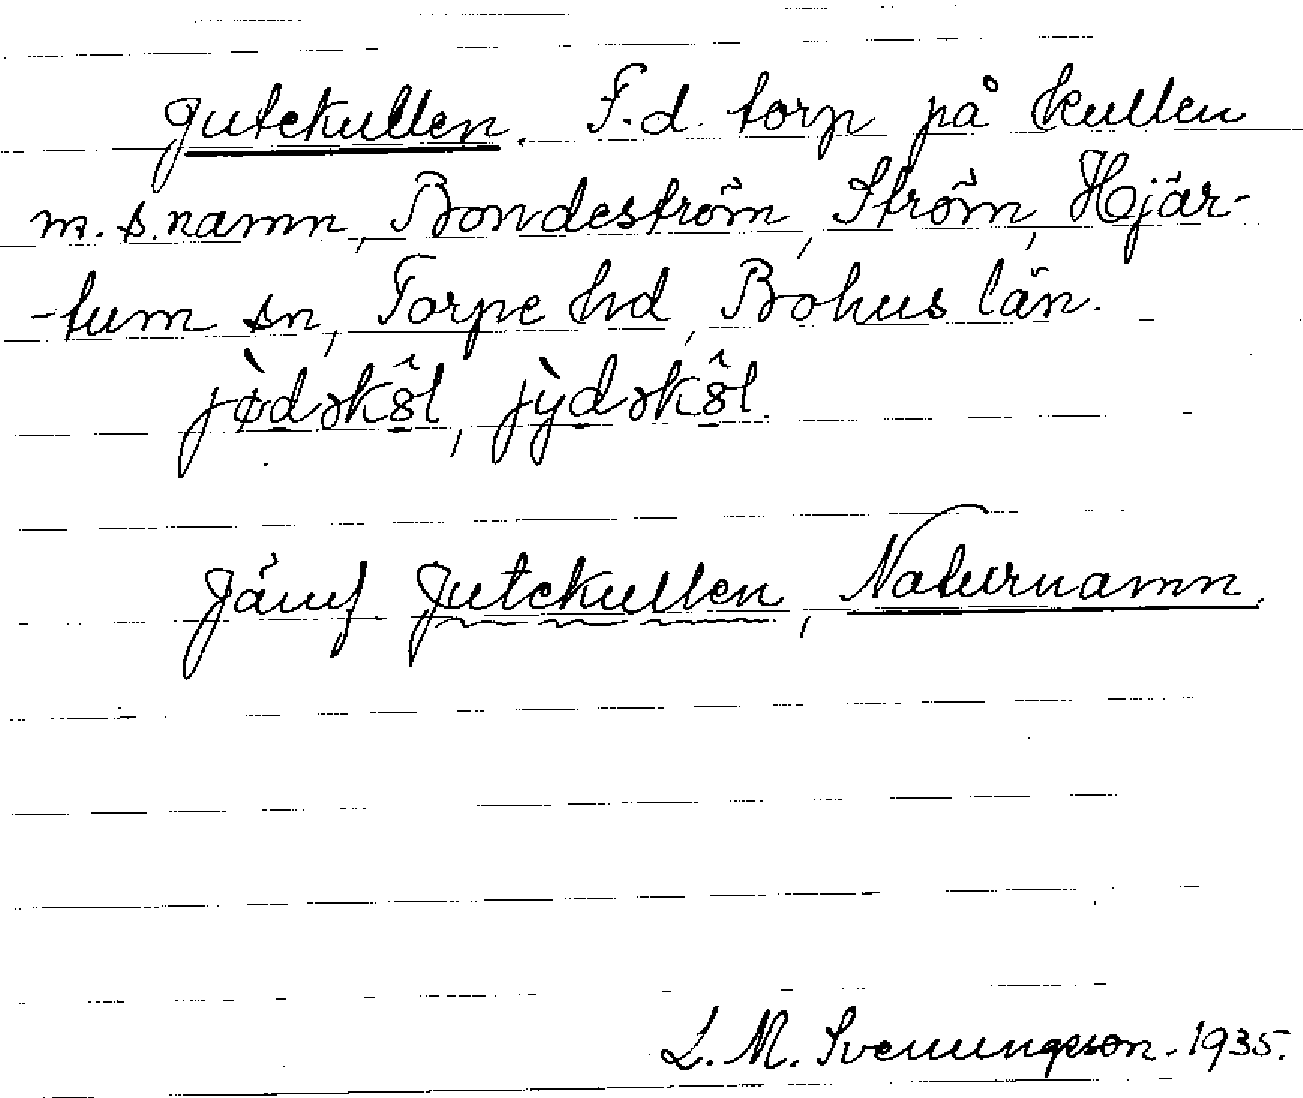 Jutekullen. F.d. torp på kullen
m. s. namn, Bondeström, Ström, Hjär-
-tum sn, Torpe hd, Bohus län.
jø̀dəkŝl, jỳdəkŝl.
Jämf Jutekullen, Naturnamn.
L. M. Svenungsson. 1935.